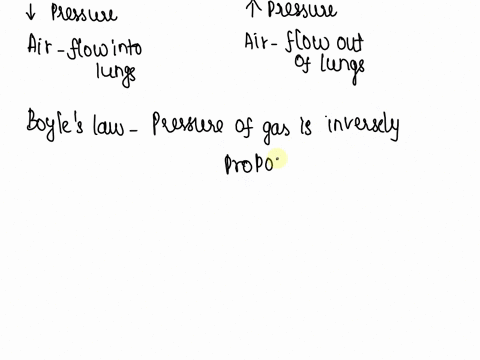 ↓ Pressure
Air - flow into
lungs
↑ Pressure
Air - flow out
of lungs
Boyle's law - Pressure of gas is inversely
Propo